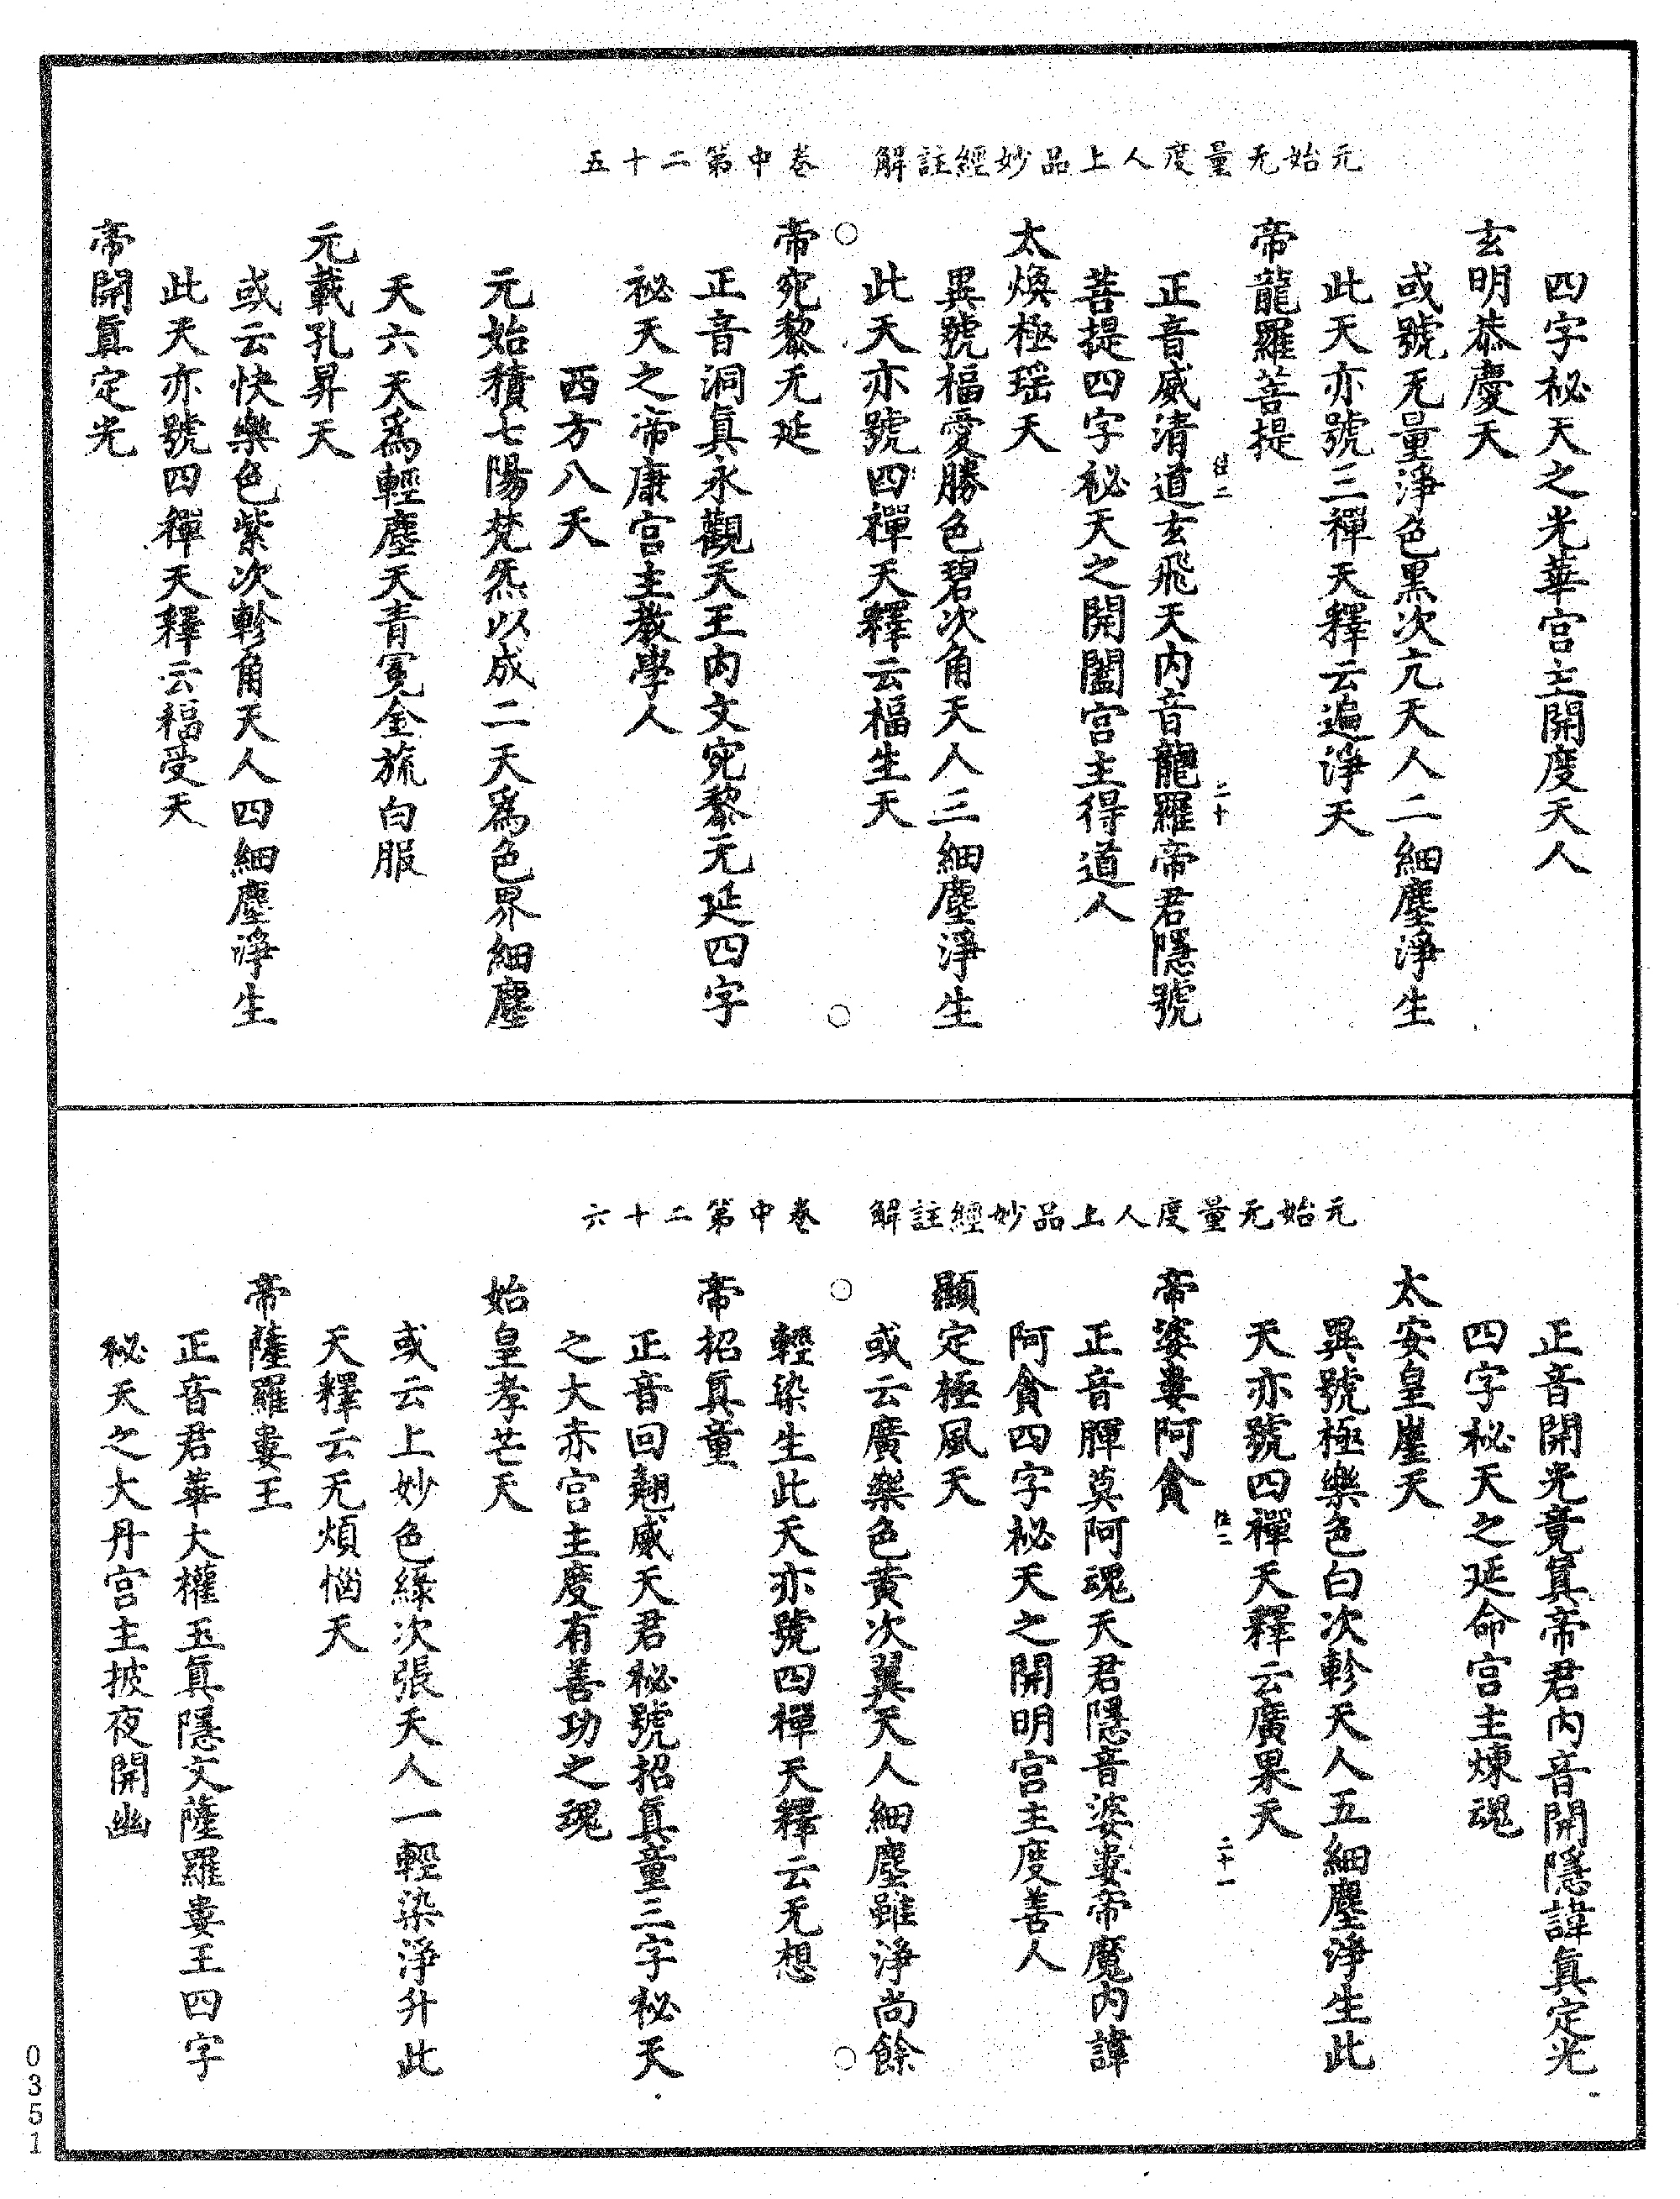 元始无量度人上品妙經註解　卷中第二十五
四字祕天之光華宮主開度天人
玄明恭慶天
或號无量淨色黑次亢天人二細塵淨生
此天亦號三禪天釋云遍淨天
帝龍羅菩提
往二　二十
正音威清道玄飛天內音龍羅帝君隱號
菩提四字祕天之開闔宮主得道人
太煥極瑶天
異號福愛勝色碧次角天人三細塵淨生
此天亦號四禪天釋云福生天
帝宛黎无延
正音洞真永觀天王內文宛黎元延四字
祕天之帝康宮主教學人
西方八天
元始積七陽梵炁以成二天爲色界細塵
天六天爲輕塵天青冕金旒白服
元載孔昇天
或云快樂色紫次軫角天人四細塵淨生
此天亦號四禪天釋云福受天
帝開真定光
元始无量度人上品妙經註解　卷中第二十六
正音開光竟真帝君內音開隱諱真定光
四字祕天之延命宮主煉魂
太安皇崖天
異號極樂色白次軫天人五細塵淨生此
天亦號四禪天釋云廣果天
往二　二十一
帝婆婁阿貪
正音腪莫阿魂天君隱音婆婁帝魔內諱
阿貪四字祕天之開明宮主度善人
顯定極風天
或云廣樂色黃次翼天人細塵雖淨尚餘
輕染生此天亦號四禪天釋云无想
帝招真童
正音回翘威天君祕號招真童三字祕天
之大赤宮主度有善功之魂
始皇孝芒天
或云上妙色綠次張天人一輕染淨升此
天釋云无煩惱天
帝薩羅婁王
正音君華大權玉真隱文薩羅婁王四字
祕天之大丹宮主披夜開幽
0351